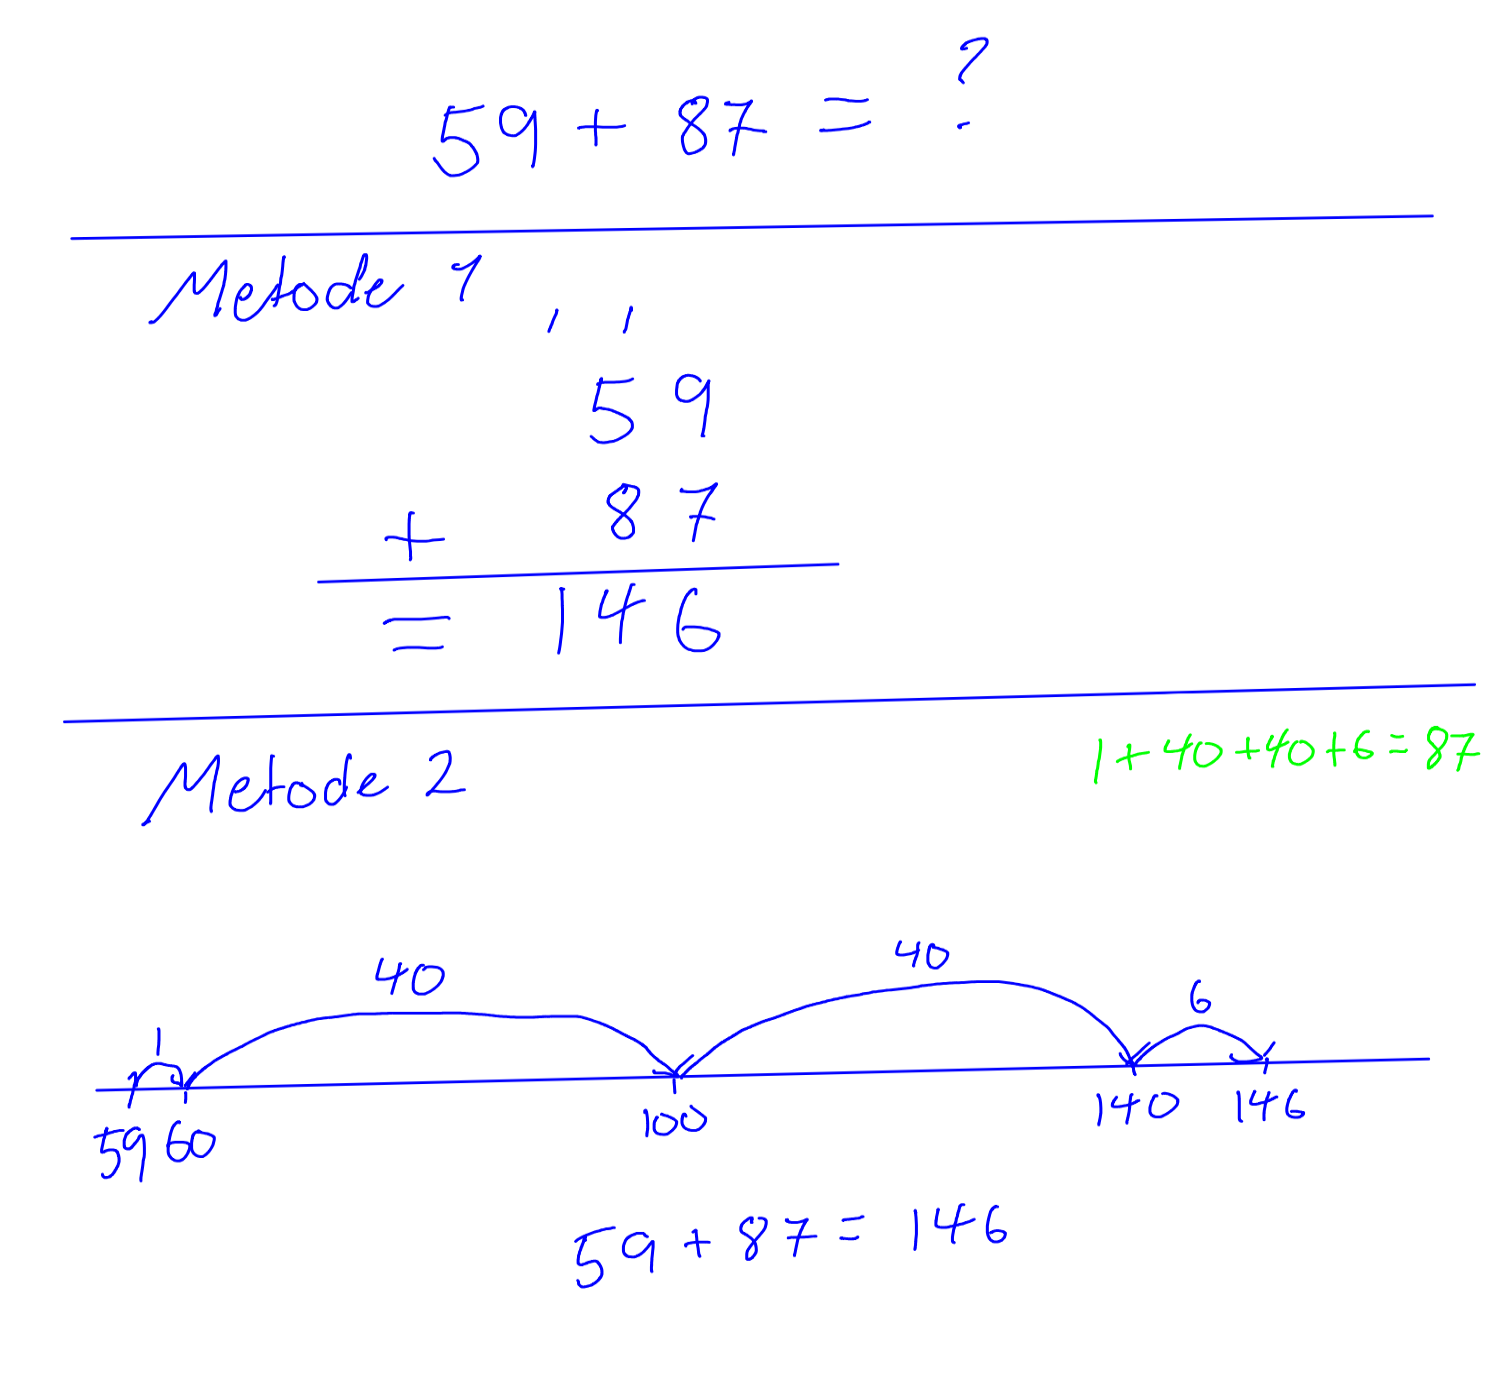 59 + 87 = ?
Metode 1
1 1
59
+ 87
= 146
Metode 2
1+40+40+6=87
1 40 40 6
59 60 100 140 146
59+87=146